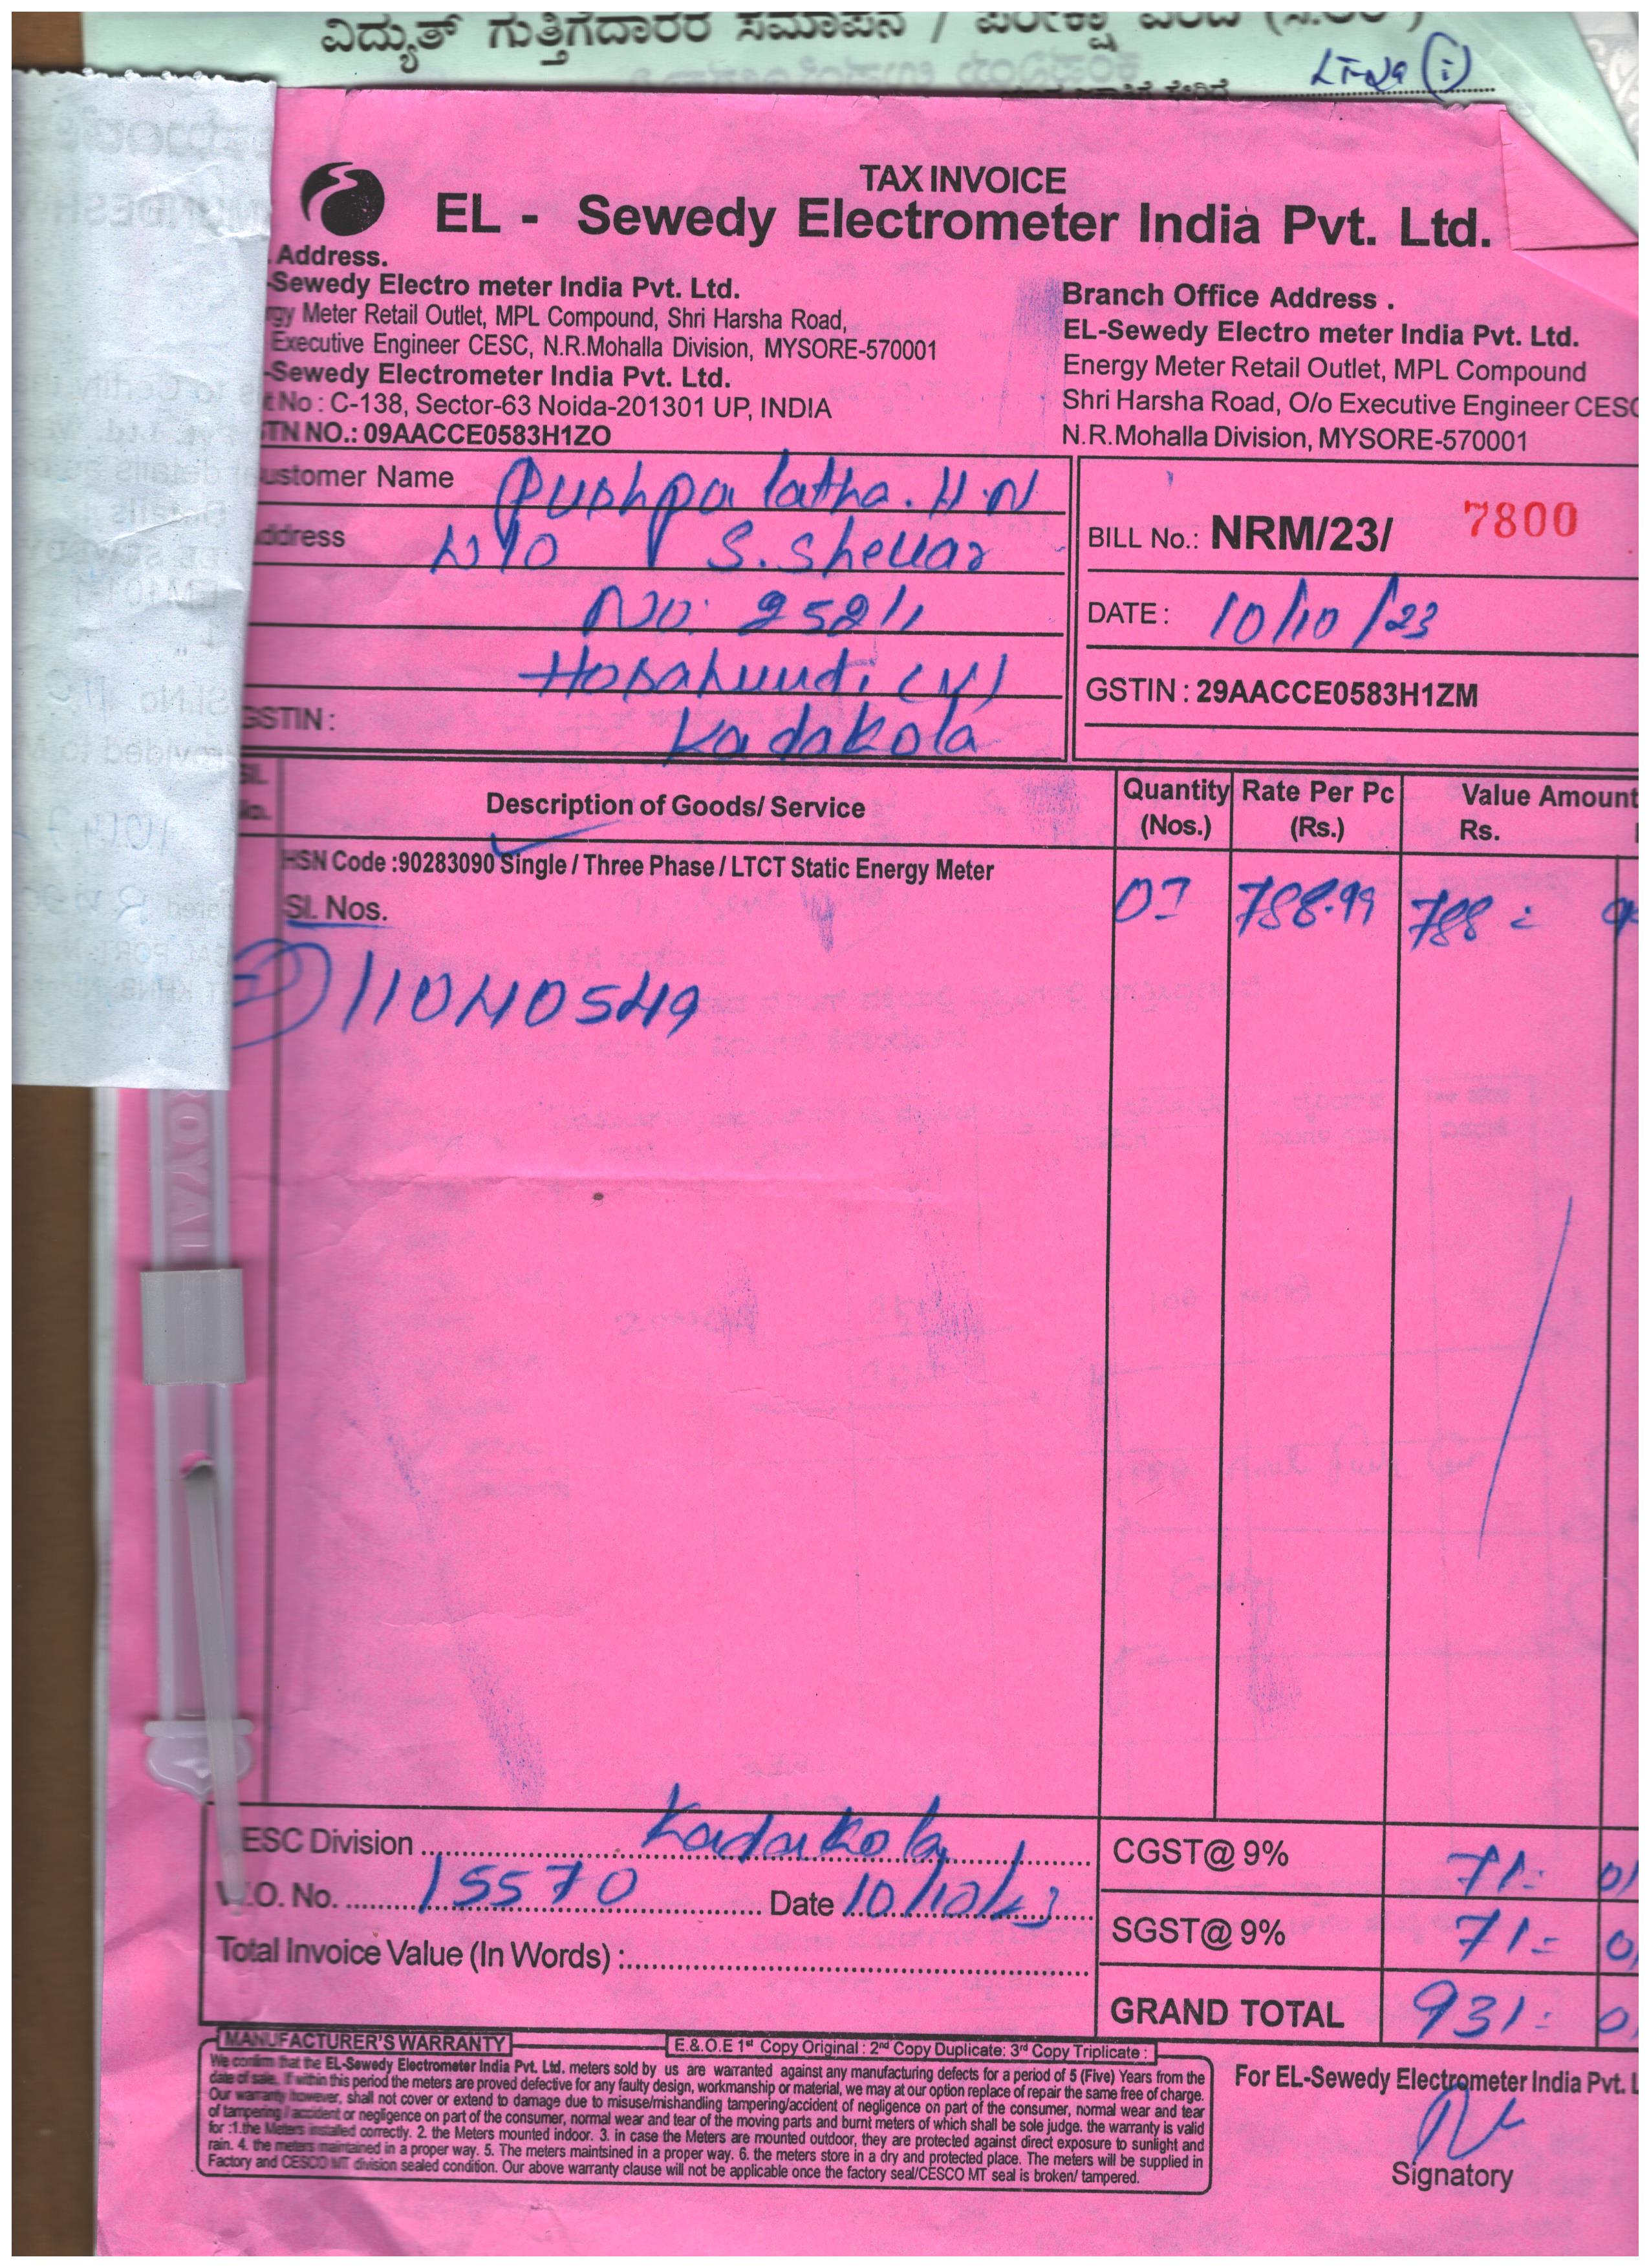 ವಿದ್ಯುತ್ ಗುತ್ತಿಗೆದಾರರ ಸಮಾಪನ /
TAX INVOICE
EL - Sewedy Electrometer India Pvt. Ltd.
Address.
-Sewedy Electro meter India Pvt. Ltd.
gy Meter Retail Outlet, MPL Compound, Shri Harsha Road,
Executive Engineer CESC, N.R.Mohalla Division, MYSORE-570001
-Sewedy Electrometer India Pvt. Ltd.
No : C-138, Sector-63 Noida-201301 UP, INDIA
TN NO.: 09AACCE0583H1ZO
Branch Office Address .
EL-Sewedy Electro meter India Pvt. Ltd.
Energy Meter Retail Outlet, MPL Compound
Shri Harsha Road, O/o Executive Engineer CESC
N.R.Mohalla Division, MYSORE-570001
ustomer Name Pushpa latha. H.N
ddress W/O S. Shekar
No: 252/1
(V)
GSTIN : Kadakola
BILL No.: NRM/23/ 7800
DATE : 10/10/23
GSTIN : 29AACCE0583H1ZM
Sl. No. Description of Goods/ Service Quantity (Nos.) Rate Per Pc (Rs.) Value Amount Rs.
HSN Code :90283090 Single / Three Phase / LTCT Static Energy Meter
Sl. Nos. 788.99 788
11040549
ESC Division Kadakola
W.O. No. 15570 Date 10/10/23
Total Invoice Value (In Words) :
CGST@ 9% 71=
SGST@ 9% 71=
GRAND TOTAL 931=
MANUFACTURER'S WARRANTY
E.&.O.E 1st Copy Original : 2nd Copy Duplicate: 3rd Copy Triplicate :
We confirm that the EL-Sewedy Electrometer India Pvt. Ltd. meters sold by us are warranted against any manufacturing defects for a period of 5 (Five) Years from the
date of sale. If within this period the meters are proved defective for any faulty design, workmanship or material, we may at our option replace of repair the same free of charge.
Our warranty however, shall not cover or extend to damage due to misuse/mishandling tampering/accident of negligence on part of the consumer, normal wear and tear
of tampering / accident or negligence on part of the consumer, normal wear and tear of the moving parts and burnt meters of which shall be sole judge. the warranty is valid
for :1.the Meters installed correctly. 2. the Meters mounted indoor. 3. in case the Meters are mounted outdoor, they are protected against direct exposure to sunlight and
rain. 4. the meters maintained in a proper way. 5. The meters maintsined in a proper way. 6. the meters store in a dry and protected place. The meters will be supplied in
Factory and CESCO MT division sealed condition. Our above warranty clause will not be applicable once the factory seal/CESCO MT seal is broken/ tampered.
For EL-Sewedy Electrometer India Pvt. L
Signatory
ROYAL